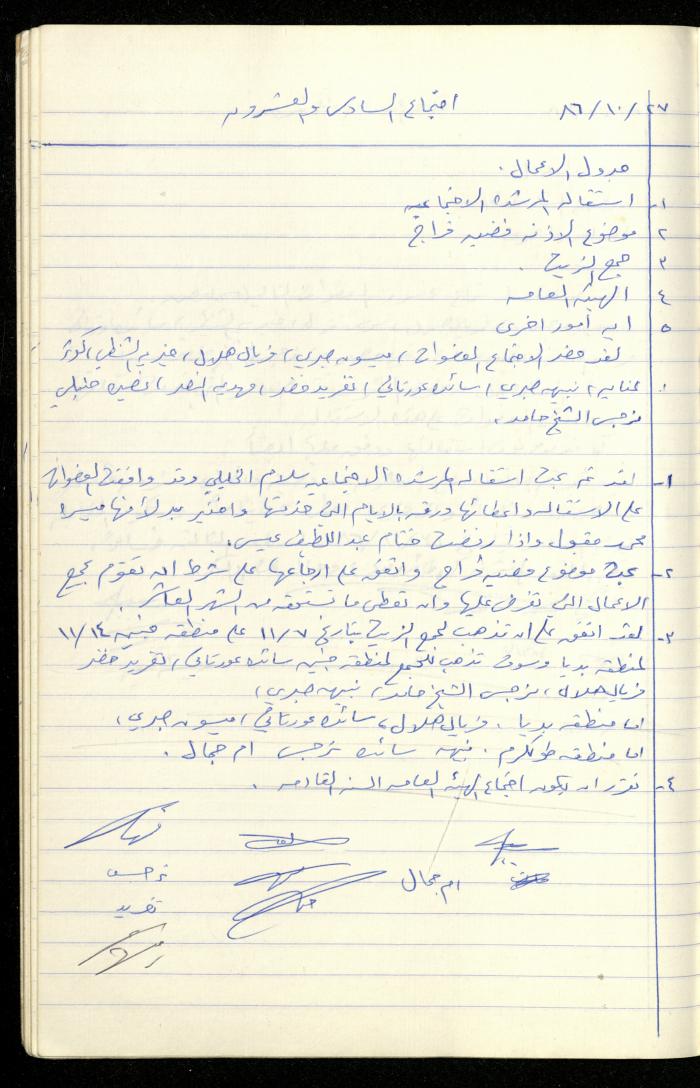 ٨٦/١٠/٢٧ اجتماع السادس والعشرون
جدول الاعمال.
١- استقاله المرشده الاجتماعيه
٢ موضوع الاذنه قضيه فراج
٣ جمع الزيت.
٤ الهيئه العامه
٥ ايه أمور اخرى
لقد حضر الاجتماع العضوات، ميسون صبري، فريال هلال، خيريه الشنطي، كوثر
عنايه، نبيهه صبري، سائده عورتاني، تغريد خضر، مهديه النصر، نرجس الشيخ حامد.
١- لقد تم بحث استقاله المرشده الاجتماعيه سلام الخليلي وقد وافقت العضوات
على الاستقاله واعطائها ورقه بالايام التي خدمتها واختير بدلاً منها ميسره
محمد مقبول واذا رفضت ختام عبد اللطيف عيسى.
٢- بحث موضوع قضيه فراج واتفق على ارجاعها على شرط ان تقوم بجميع
الاعمال التي تفرض عليها وأن تعطى ما تستحقه من الشهر العاشر.
٣- لقد اتفق على ان تذهب لجمع الزيت بتاريخ ١١/٧ على منطقه جنين ١١/١٤
لمنطقه بديا وسوف تذهب للجمع لمنطقه جنين سائده عورتاني، تغريد خضر
فريال هلال، نرجس الشيخ حامد، نبيهه صبري،
اما منطقه بديا. فريال هلال، سائده عورتاني، ميسون صبري،
اما منطقه طولكرم. نبيهه سائده نرجس ام جمال.
٤- تقرر ان يكون اجتماع الهيئه العامه السنه القادمه.
ام جمال نرجس
تغريد